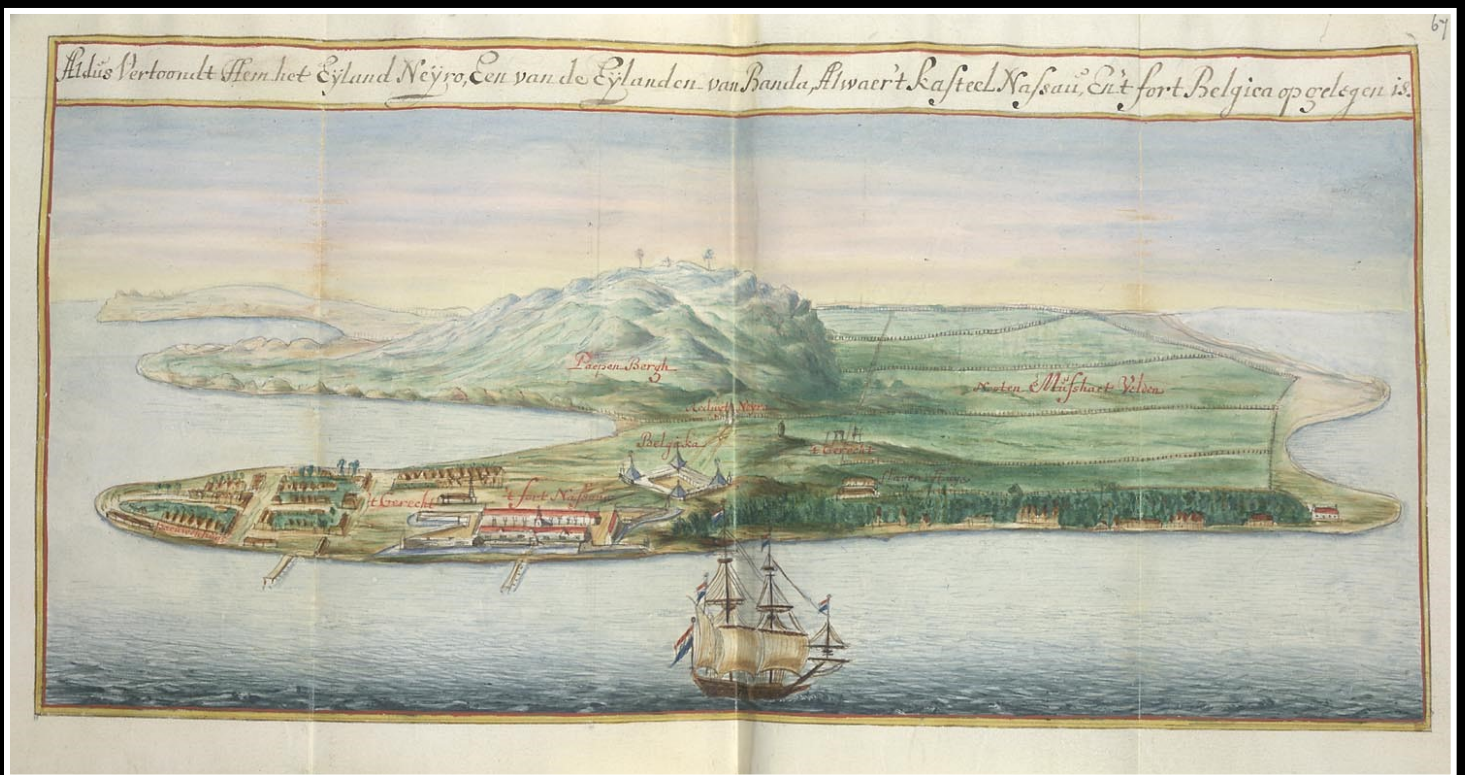 67
Aldus Vertoondt Hem het Eÿland Neÿro, Een van de Eÿlanden van Banda, Alwaer't kasteel Nassau, En't fort Belgica op gelegen is.
Paepen Bergh
Nooten Mushaet Velden
Neyra
Belgika
't Gerecht
't Gerecht
't fort Nassau